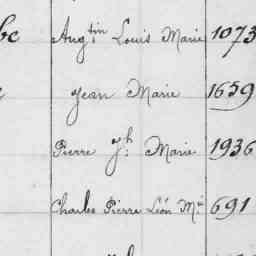 Aug.tin Louis Marie 1073
Jean Marie 1659
Pierre Jh. Marie 1936
Charles Pierre Léon Mie 691